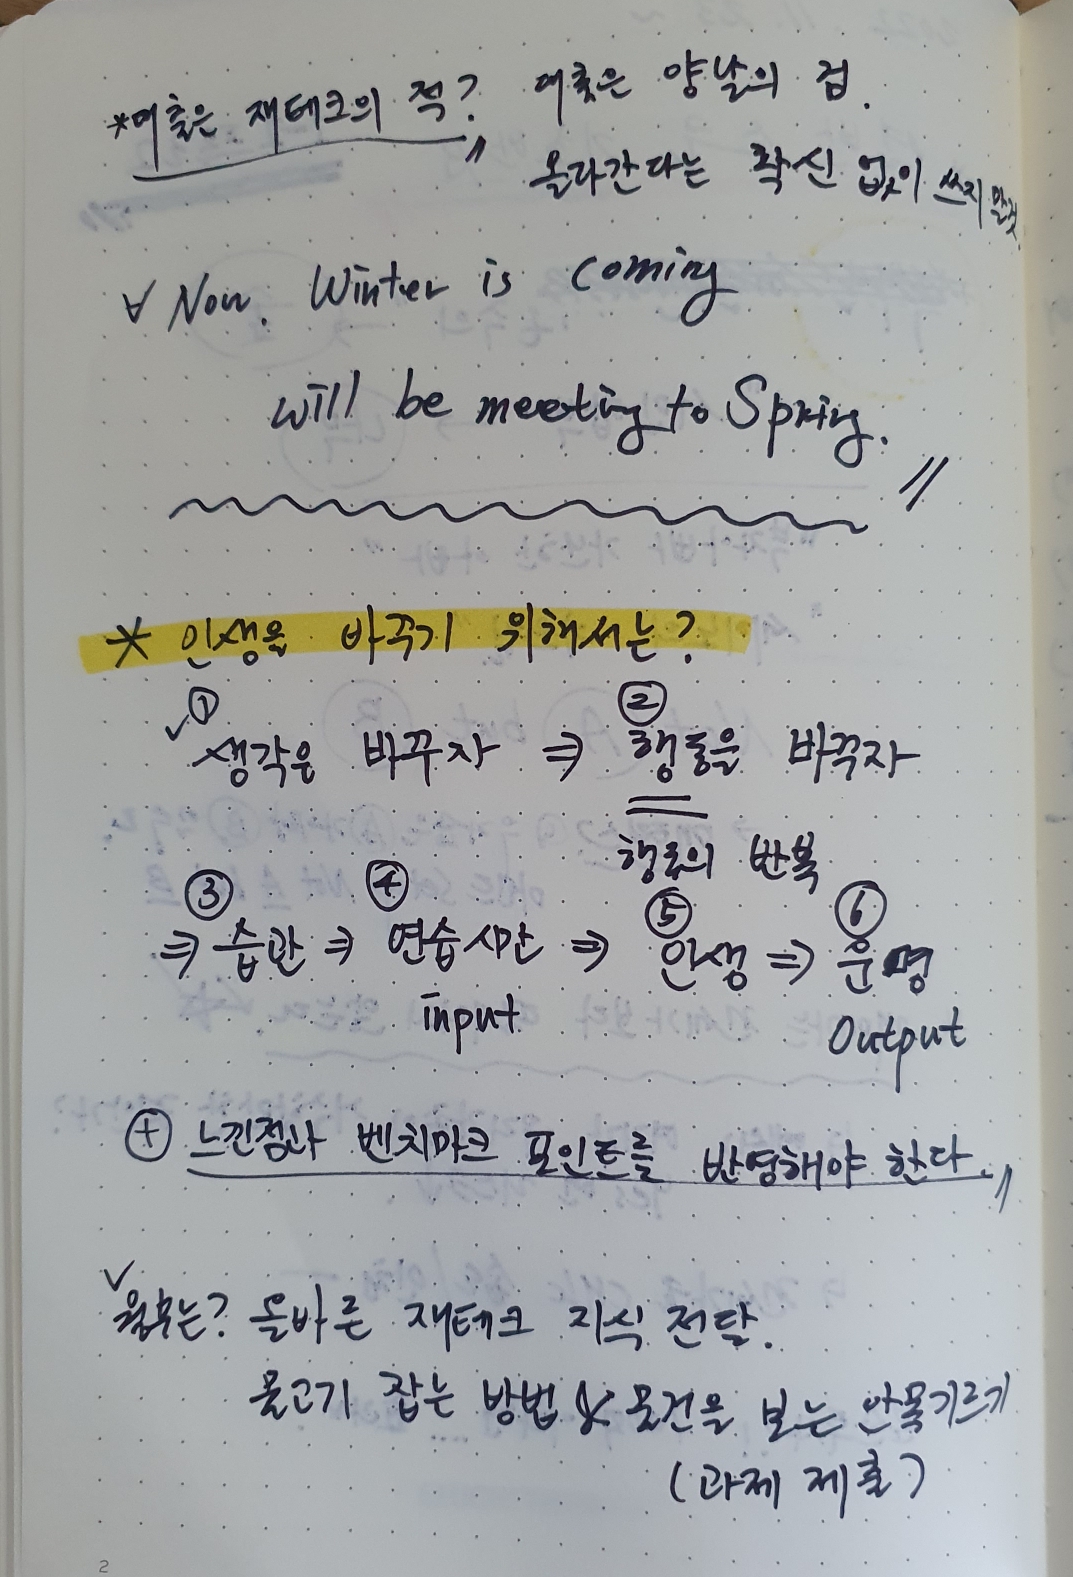 *대출은 재테크의 적? 대출은 양날의 검.
올라간다는 확신 없이 쓰지 말것
∀ Now. Winter is coming
will be meeting to Spring.
* 인생을 바꾸기 위해서는?
① ②
✓ 생각은 바꾸자 ⇒ 행동을 바꾸자
행동의 반복
③ ④ ⑤ ⑥
⇒ 습관 ⇒ 연습시간 ⇒ 인생 ⇒ 운명
input Output
⊕ 느낀점과 벤치마크 포인트를 반영해야 한다.
✓ 월부는? 올바른 재테크 지식 전달.
물고기 잡는 방법 & 물건을 보는 안목기르기
(과제 제출)
2